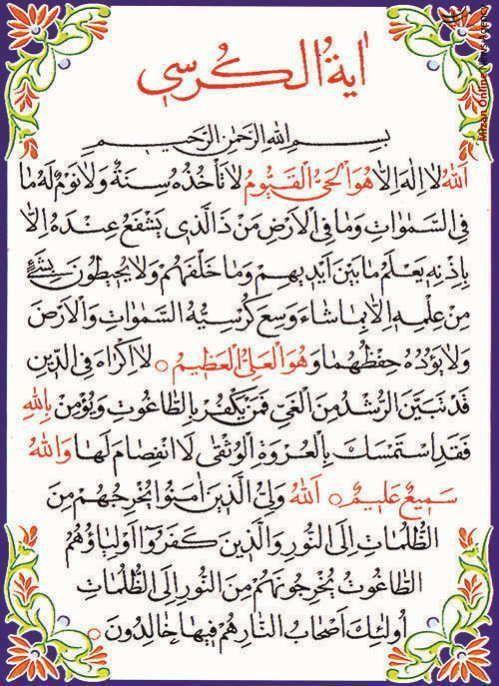 اٰیةُ الکُرسی
بِسمِ اللهِ الرَّحمٰنِ الرَّحیمِ
اَللهُ لا اِلهَ اِلاّ هُوَ الْحَیُّ الْقَیُّومُ لاتَأخُذُهُ سِنَةٌ وَلانَوْمٌ لَهُ ما
فِی السَّمٰواتِ وَما فِی الْاَرْضِ مَنْ ذَا الَّذی یَشْفَعُ عِنْدَهُ اِلاّ
بِاِذْنِهِ یَعْلَمُ ما بَیْنَ اَیْدیهِمْ وَما خَلْفَهُمْ وَلا یُحیطُونَ بِشَیْءٍ
مِنْ عِلْمِهِ اِلاّ بِما شاءَ وَسِعَ کُرْسِیُّهُ السَّمٰواتِ وَالْاَرْضَ
وَلا یَؤُدُهُ حِفْظُهُما وَهُوَ الْعَلِیُّ الْعَظیمُ ○ لا اِکْراهَ فِی الدّینِ
قَدْ تَبَیَّنَ الرُّشْدُ مِنَ الْغَیِّ فَمَنْ یَکْفُرْ بِالطّاغُوتِ وَیُؤْمِنْ بِاللهِ
فَقَدِ اسْتَمْسَكَ بِالْعُرْوَةِ الْوُثْقٰی لَا انْفِصامَ لَها وَاللهُ
سَمیعٌ عَلیمٌ ○ اَللهُ وَلِیُّ الَّذینَ اٰمَنُوا یُخْرِجُهُمْ مِنَ
الظُّلُماتِ اِلَی النُّورِ وَالَّذینَ کَفَرُوا اَوْلِیاؤُهُمُ
الطّاغُوتُ یُخْرِجُونَهُمْ مِنَ النُّورِ اِلَی الظُّلُماتِ
اُولئِكَ اَصْحابُ النّارِ هُمْ فیها خالِدُونَ ○
Mizan Online